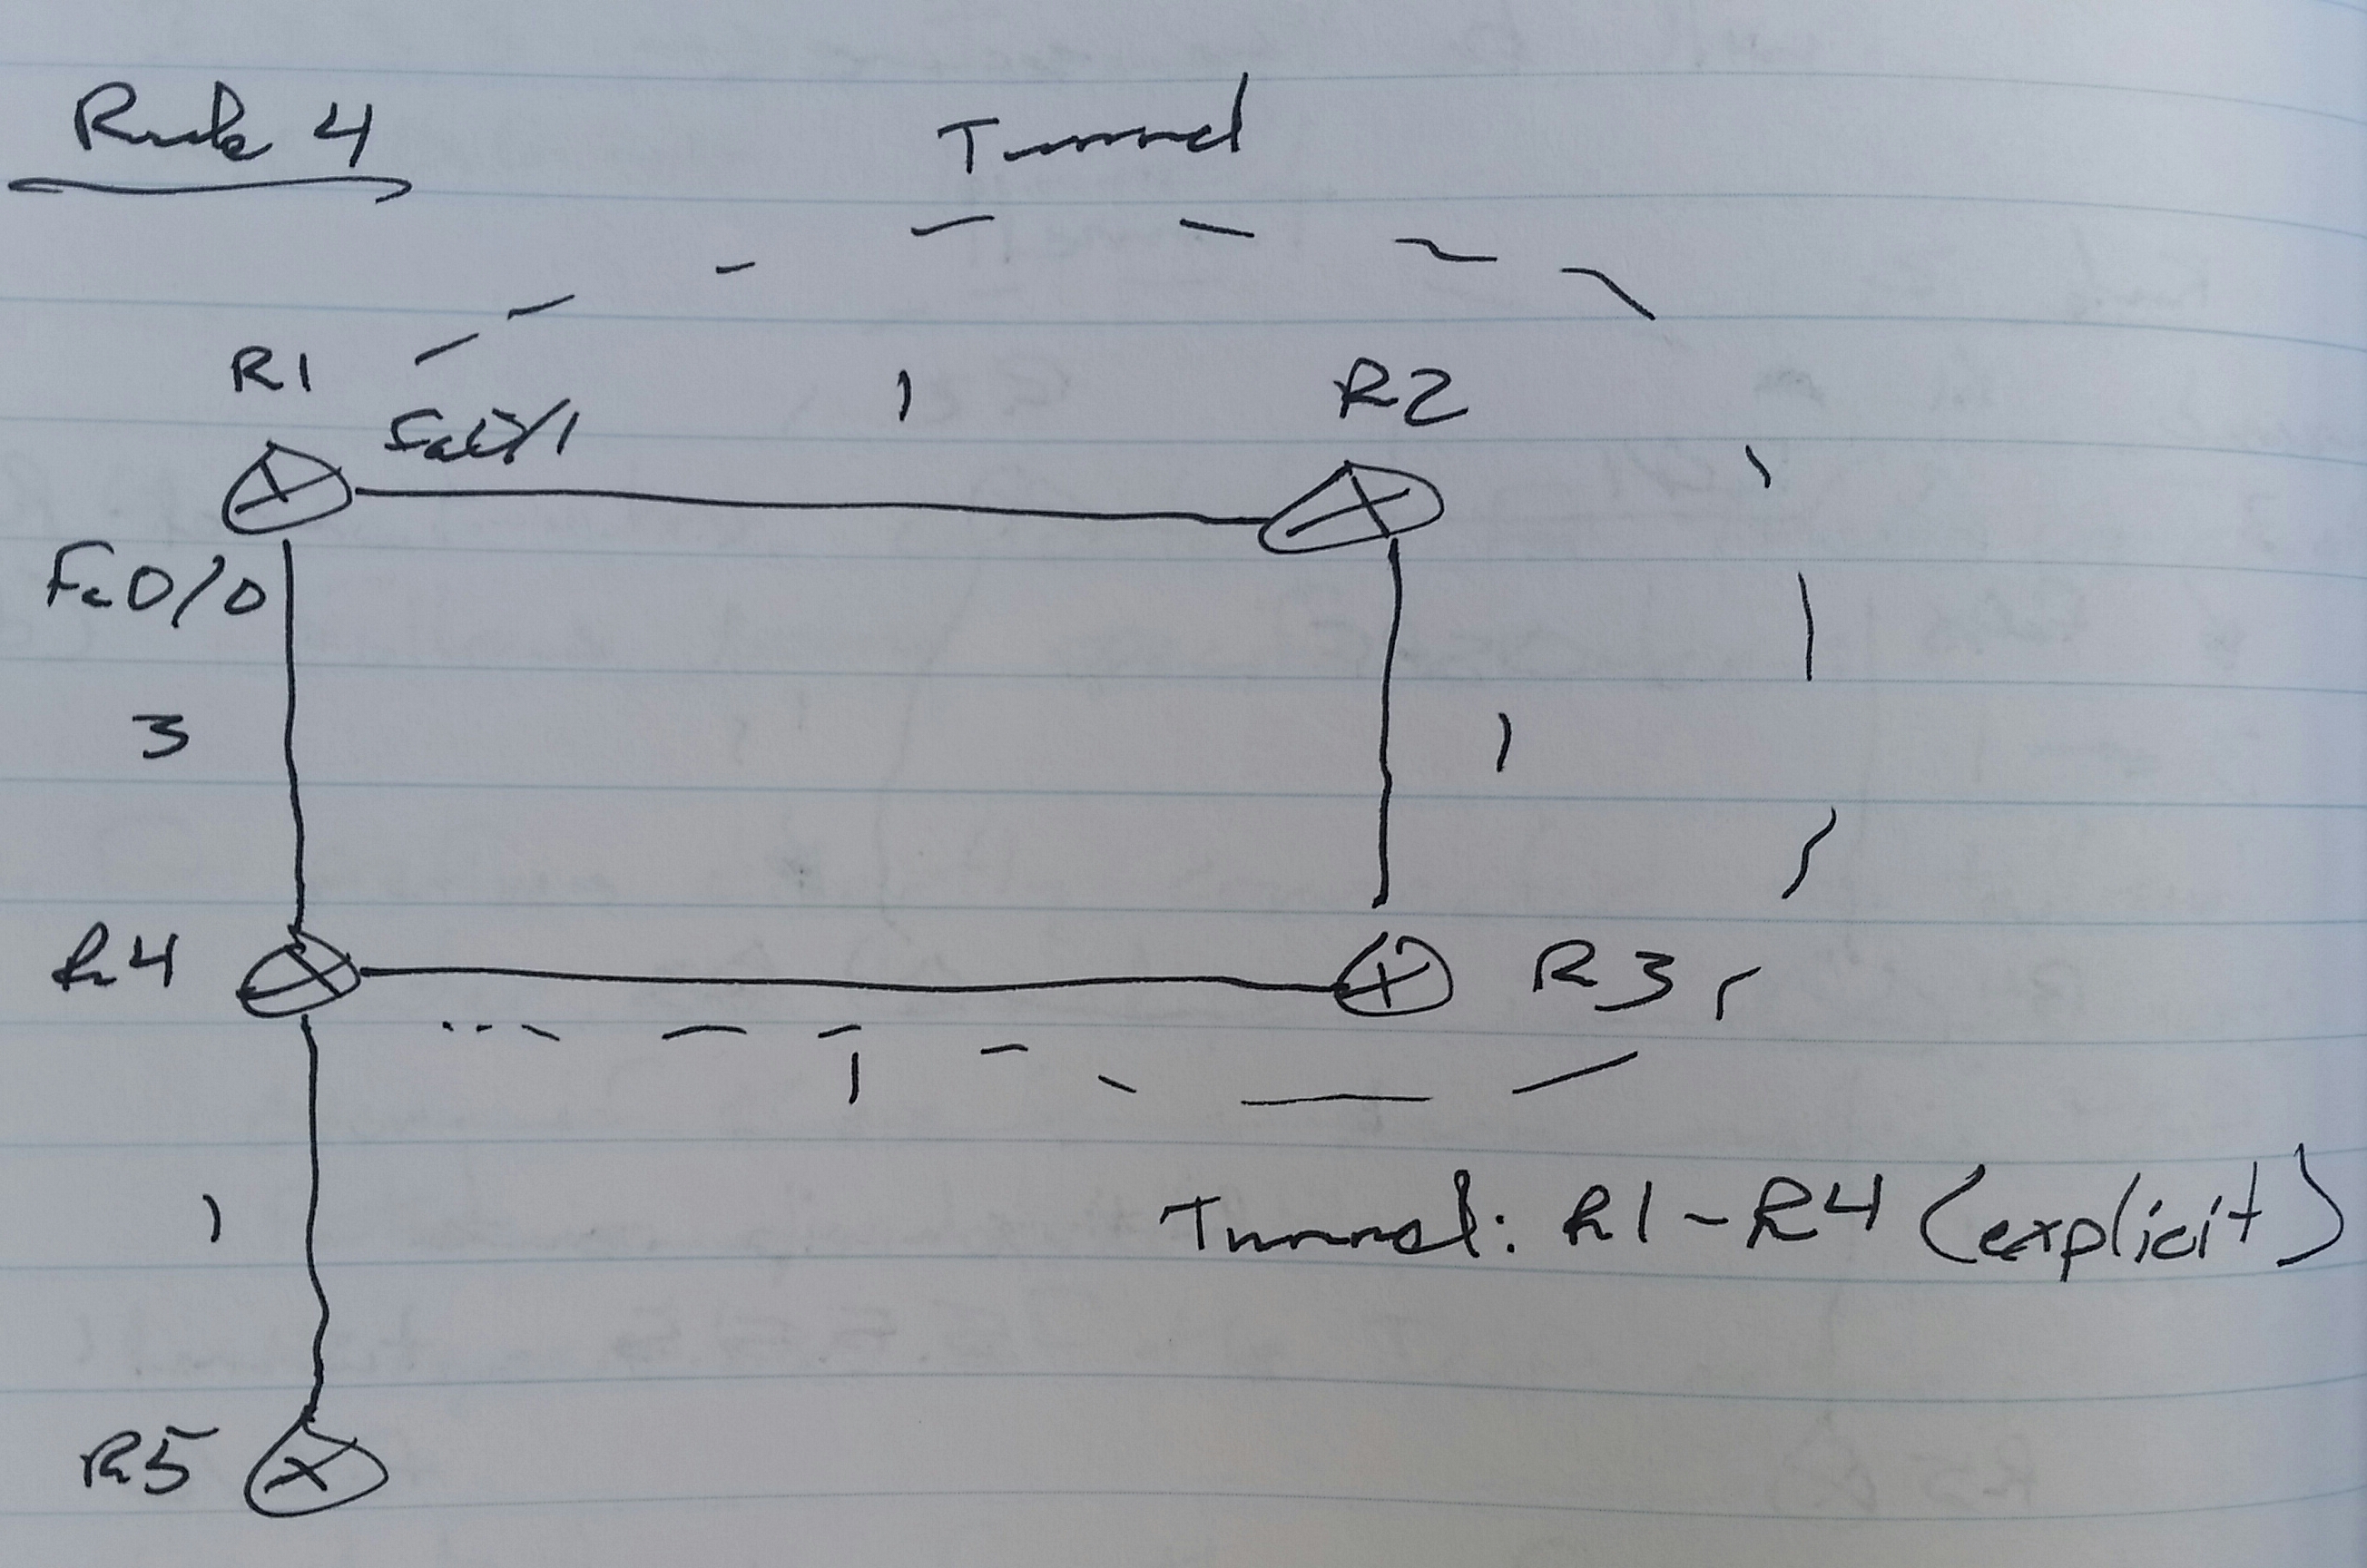 Rule 4
Tunnel
R1
1
R2
Fa0/1
Fa0/0
3
1
R4
R3
1
Tunnel: R1-R4 (explicit)
1
R5